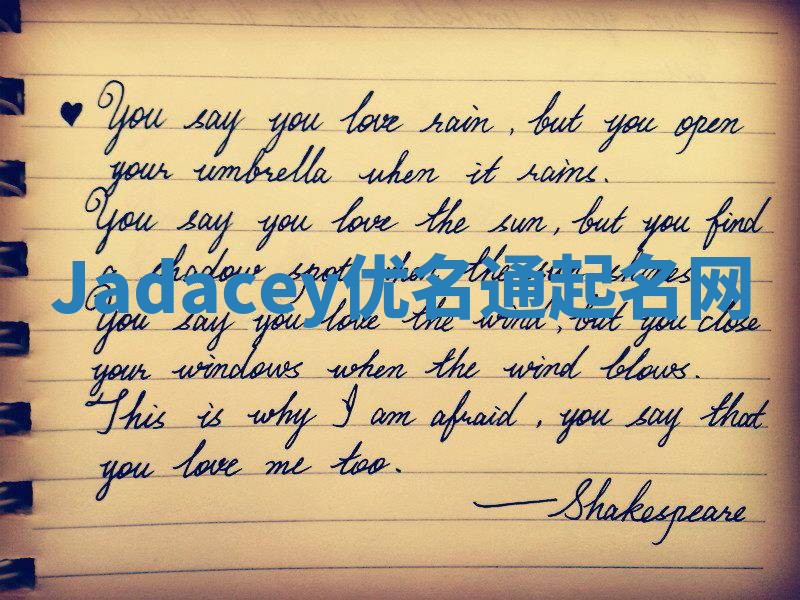 ♥ You say you love rain, but you open
your umbrella when it rains.
You say you love the sun, but you find
a shadow spot when the sun shines.
Jadacey优名通起名网
You say you love the wind, but you close
your windows when the wind blows.
This is why I am afraid, you say that
you love me too.
—Shakespeare